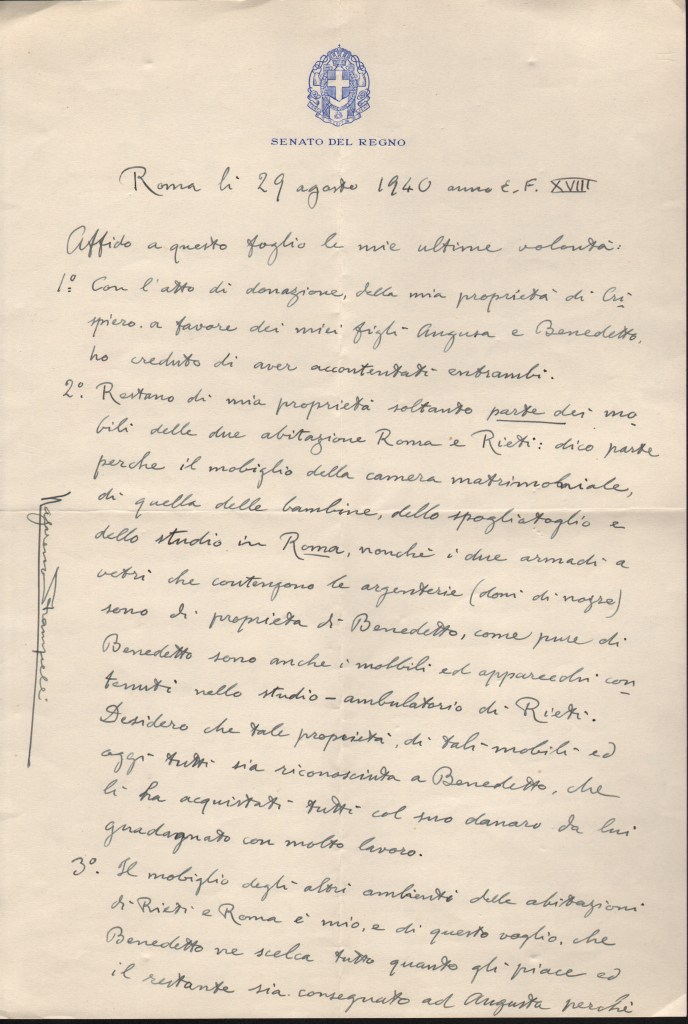 SENATO DEL REGNO
Roma li 29 agosto 1940 anno E. F. XVIII
Affido a questo foglio le mie ultime volontà:
1º. Con l'atto di donazione, della mia proprietà di Cri-
spiero. a favore dei miei figli Augusta e Benedetto,
ho creduto di aver accontentati entrambi.
2º. Restano di mia proprietà soltanto parte dei mo-
bili delle due abitazione Roma e Rieti: dico parte
perche il mobiglio della camera matrimoniale,
di quella delle bambine, dello spogliatoglio e
dello studio in Roma, nonchè i due armadi a
vetri che contengono le argenterie (doni di nozze)
sono di proprietà di Benedetto, come pure di
Benedetto sono anche i mobbili ed apparecchi con-
tenuti nello studio-ambulatorio di Rieti.
Desidero che tale proprietà, di tali mobili ed
oggi tutti sia riconosciuta a Benedetto, che
li ha acquistati tutti col suo danaro da lui
guadagnato con molto lavoro.
3º. Il mobiglio degli altri ambienti delle abitazioni
di Rieti e Roma è mio, e di questo voglio, che
Benedetto ne scelca tutto quanto gli piace ed
il restante sia consegnato ad Augusta perché
Nazareno Strampelli